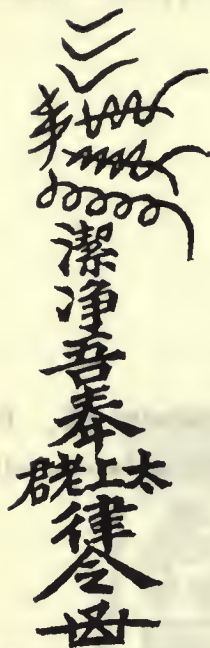 潔净吾奉太上老君律令